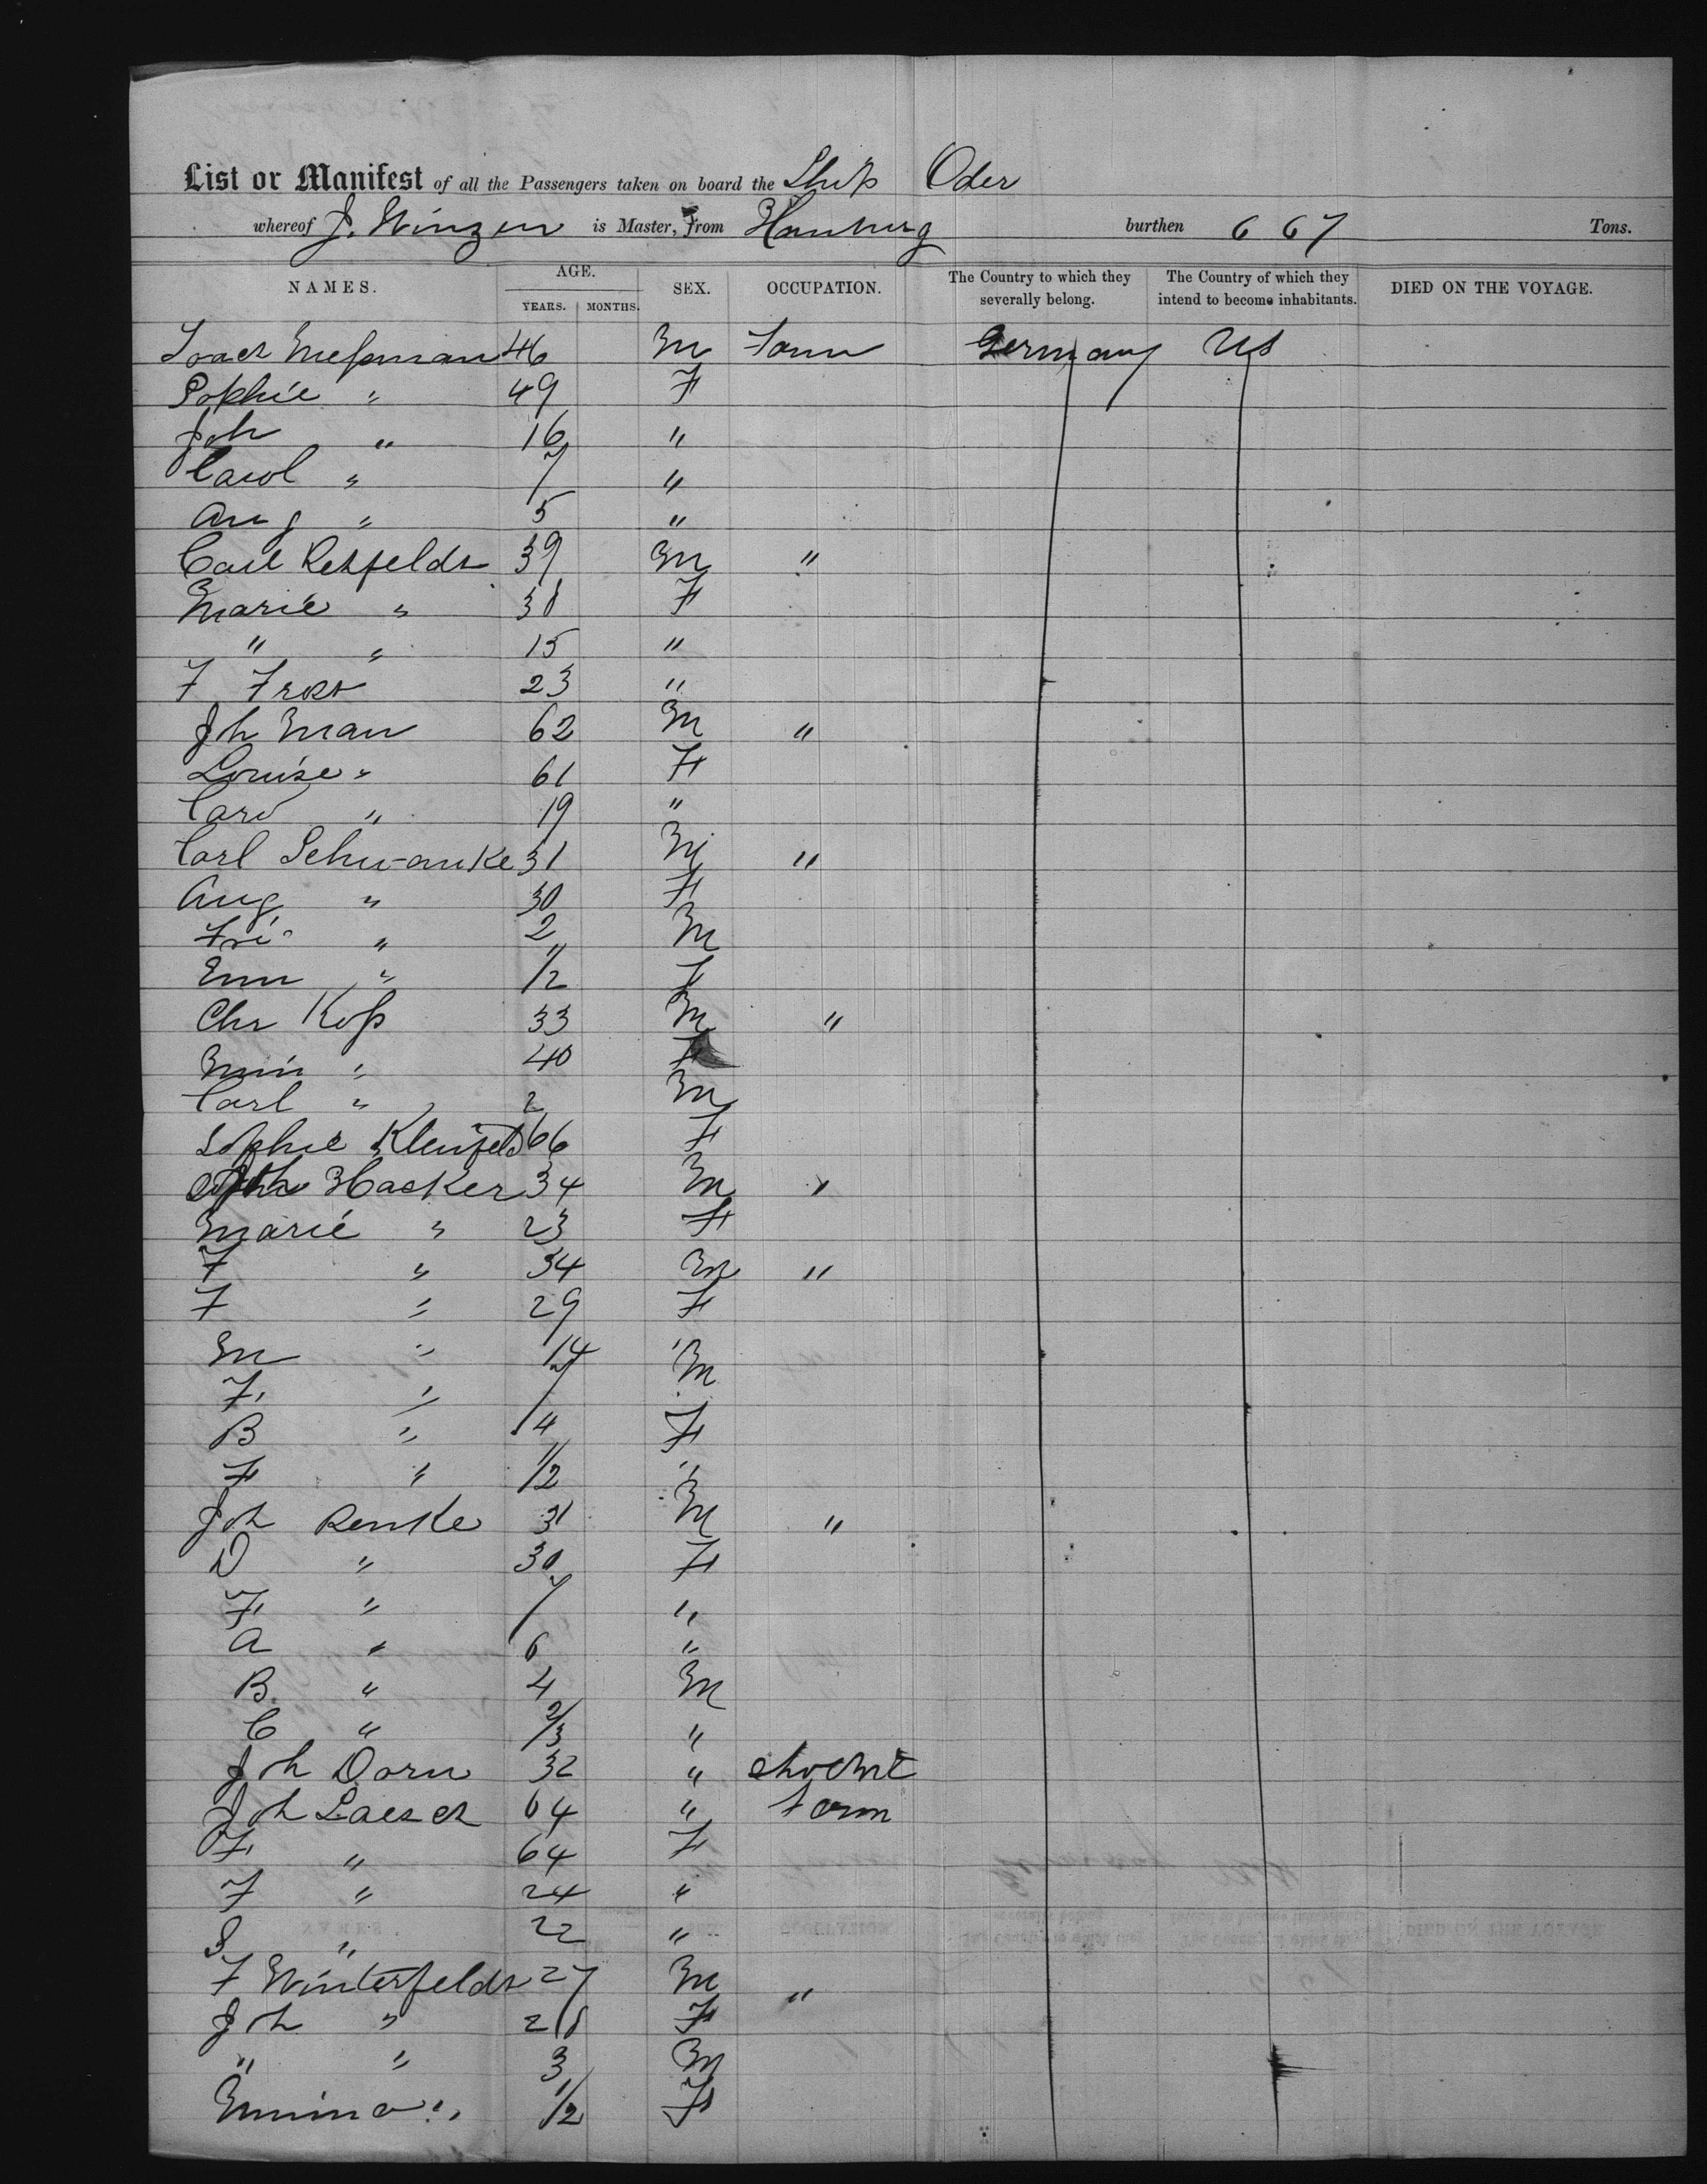 List or Manifest of all the Passengers taken on board the Ship Oder
whereof J. Winzen is Master, from Hamburg burthen 667 Tons.
NAMES. AGE. YEARS. MONTHS. SEX. OCCUPATION. The Country to which they severally belong. The Country of which they intend to become inhabitants. DIED ON THE VOYAGE.
46 M Farm Germany US
Sophie " 49 F
Joh " 16 "
Carol " 7 "
Aug " 5 "
Carl 39 M "
Marie " 38 F
" " 15 "
F Frost 23 "
Joh Man 62 M "
Louise " 61 F
Caro " 19 "
Carl Schwanke 31 M "
Aug " 30 F
Fri " 2 M
Em " 1/2 F
Chr Koß 33 M "
Min " 40 F
Carl " 2 M
Sophie Kleinfeld 66 F
Hacker 34 M "
Marie " 23 F
F " 34 M "
F " 29 F
M " 14 "
F. " 7 M
B " 4 F
F " 1/2 "
Joh Renke 31 M "
D " 30 F
F " 7 "
A " 6 "
B. " 4 M
C " 2/3 "
Joh Dorn 32 "
Joh 64 " Farm
F. " 64 F
F " 24 "
S. " 22 "
F Winterfeldt 27 M "
Joh " 28 F
" " 3 M
Emma " 1/2 F